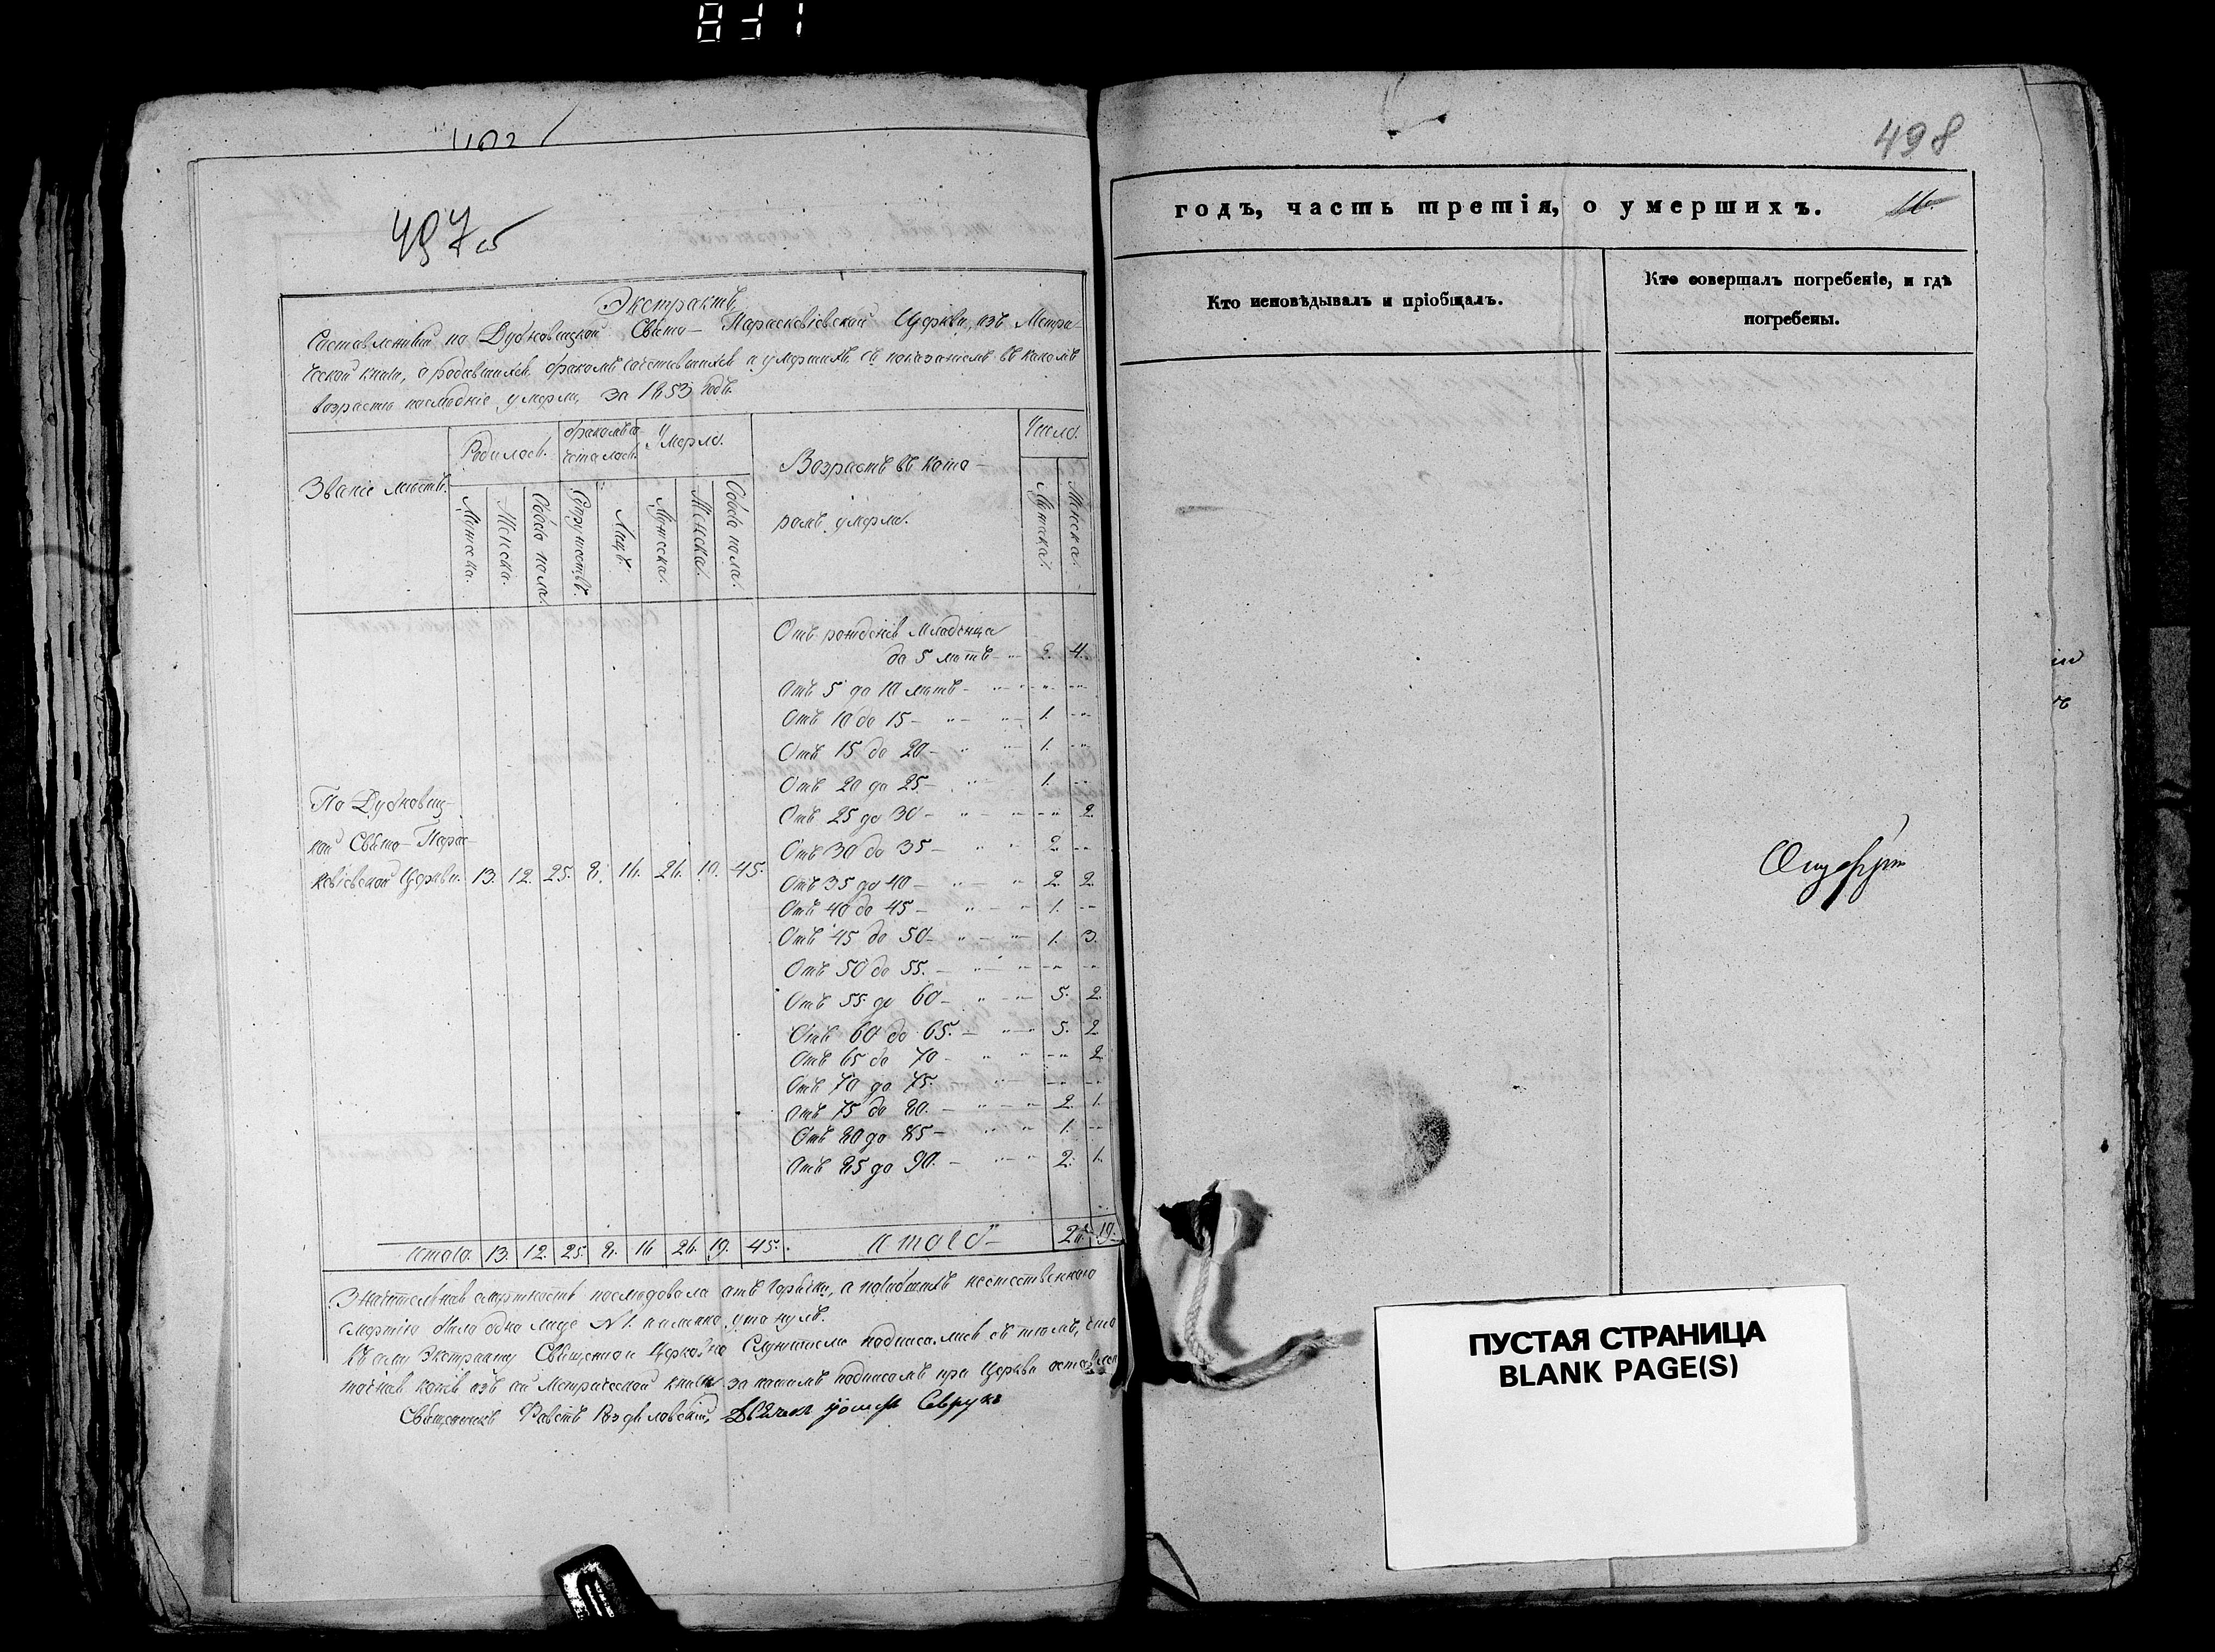 497об
Экстрактъ
Составленный по Дубновицкой Свято-Параскевіевской Церкви, изъ Метри-
ческой книги, о родившихся, бракомъ сочетавшихся и умершихъ съ показаніемъ въ какомъ
возрастѣ послѣдніе умерли, за 1853 годъ.
Званіе мѣстъ. Родилось. Бракомъ со- Умерло. Возрастъ въ кото- Число.
четалось.
ромъ умерли.
Мужеска. Женска. Обоего пола. Супружествъ. Лицъ. Мужеска. Женска. Обоего пола. Мужеска. Женска.
Отъ рожденія младенца
до 5 лѣтъ - 2. 4.
Отъ 5 до 10 лѣтъ - " - " - "
Отъ 10 до 15 - " - " - 1. - "
Отъ 15 до 20 - " - " - 1. - "
Отъ 20 до 25 - " - 1. - "
Отъ 25 до 30 - " - " - " 2.
Отъ 30 до 35 - " - " 2. - "
Отъ 35 до 40 - " - " 2. 2.
Отъ 40 до 45 - " - " 1. - "
Отъ 45 до 50 - " - " 1. 3.
Отъ 50 до 55. - " - " - " - "
Отъ 55 до 60 - " - " 5. 2.
Отъ 60 до 65. - " - " 5. 2.
Отъ 65 до 70 - " - " - " 2.
Отъ 70 до 75. " - " - " - "
Отъ 75 до 80. - " - " 2. 1.
Отъ 80 до 85 - " - " 1. - "
Отъ 85 до 90. - " - " 2. 1.
По Дубновиц-
кой Свято-Парас-
кевіевской Церкви. 13. 12. 25. 8. 16. 26. 19. 45.
Итого. 13. 12. 25. 8. 16. 26. 19. 45. Итого - 26. 19.
Значительная смертность послѣдовала отъ горячки, а погибшихъ неестественною
смертію было одно лице № 1. именно утонулъ.
Къ сему Экстракту Священно и Церковно Служители подписались съ тѣмъ, что
точная копія изъ сей Метрической книги за нашимъ подписомъ при Церкви
Священникъ
498
годъ, часть третія, о умершихъ.
Кто исповѣдывалъ и пріобщалъ. Кто совершалъ погребеніе, и гдѣ
погребены.
ПУСТАЯ СТРАНИЦА
BLANK PAGE(S)